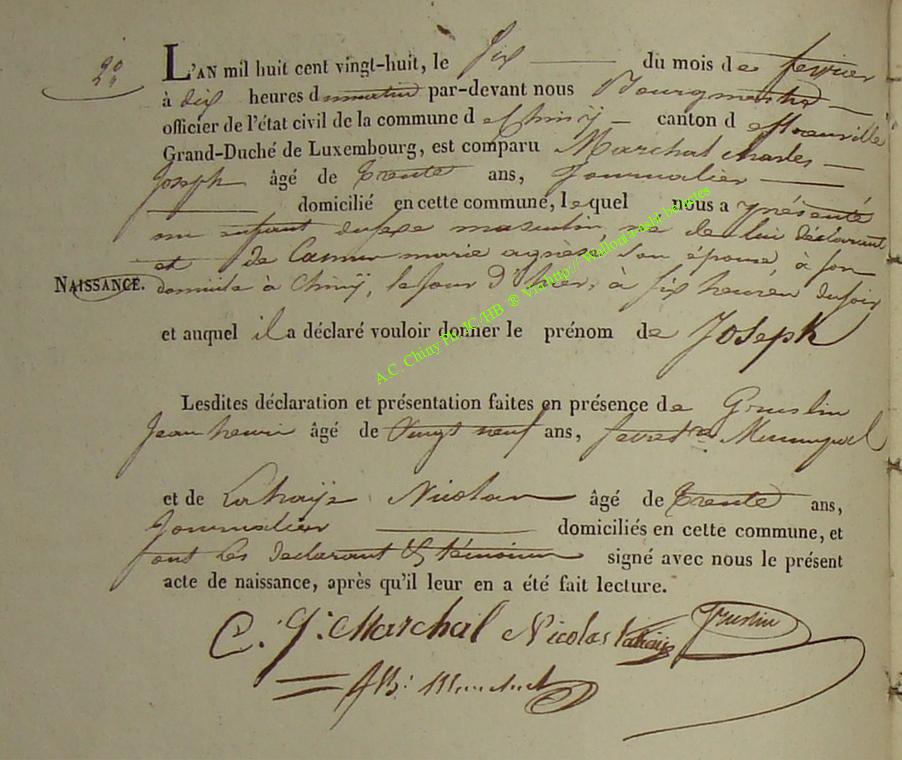 2°
L'AN mil huit cent vingt-huit, le six du mois de fevrier
à dix heures du matin par-devant nous Bourgmestre
officier de l'état civil de la commune de Chinÿ canton de florenville
Grand-Duché de Luxembourg, est comparu Marchal charles
Joseph âgé de trente ans, Journalier
domicilié en cette commune, lequel nous a présenté
un enfant du sexe masculin, né de lui déclarant
et de marie agnès son épouse, à son
NAISSANCE. domicile à Chinÿ, le Jour d'hier, à six heures du soir
et auquel il a déclaré vouloir donner le prénom de Joseph
A.C. Chiny
Lesdites déclaration et présentation faites en présence de
Jean henri âgé de vingt neuf ans,
et de Lahaÿe Nicolas âgé de trente ans,
Journalier domiciliés en cette commune, et
ont les declarant & témoins signé avec nous le présent
acte de naissance, après qu'il leur en a été fait lecture.
C. J. Marchal Nicolas Lahaije